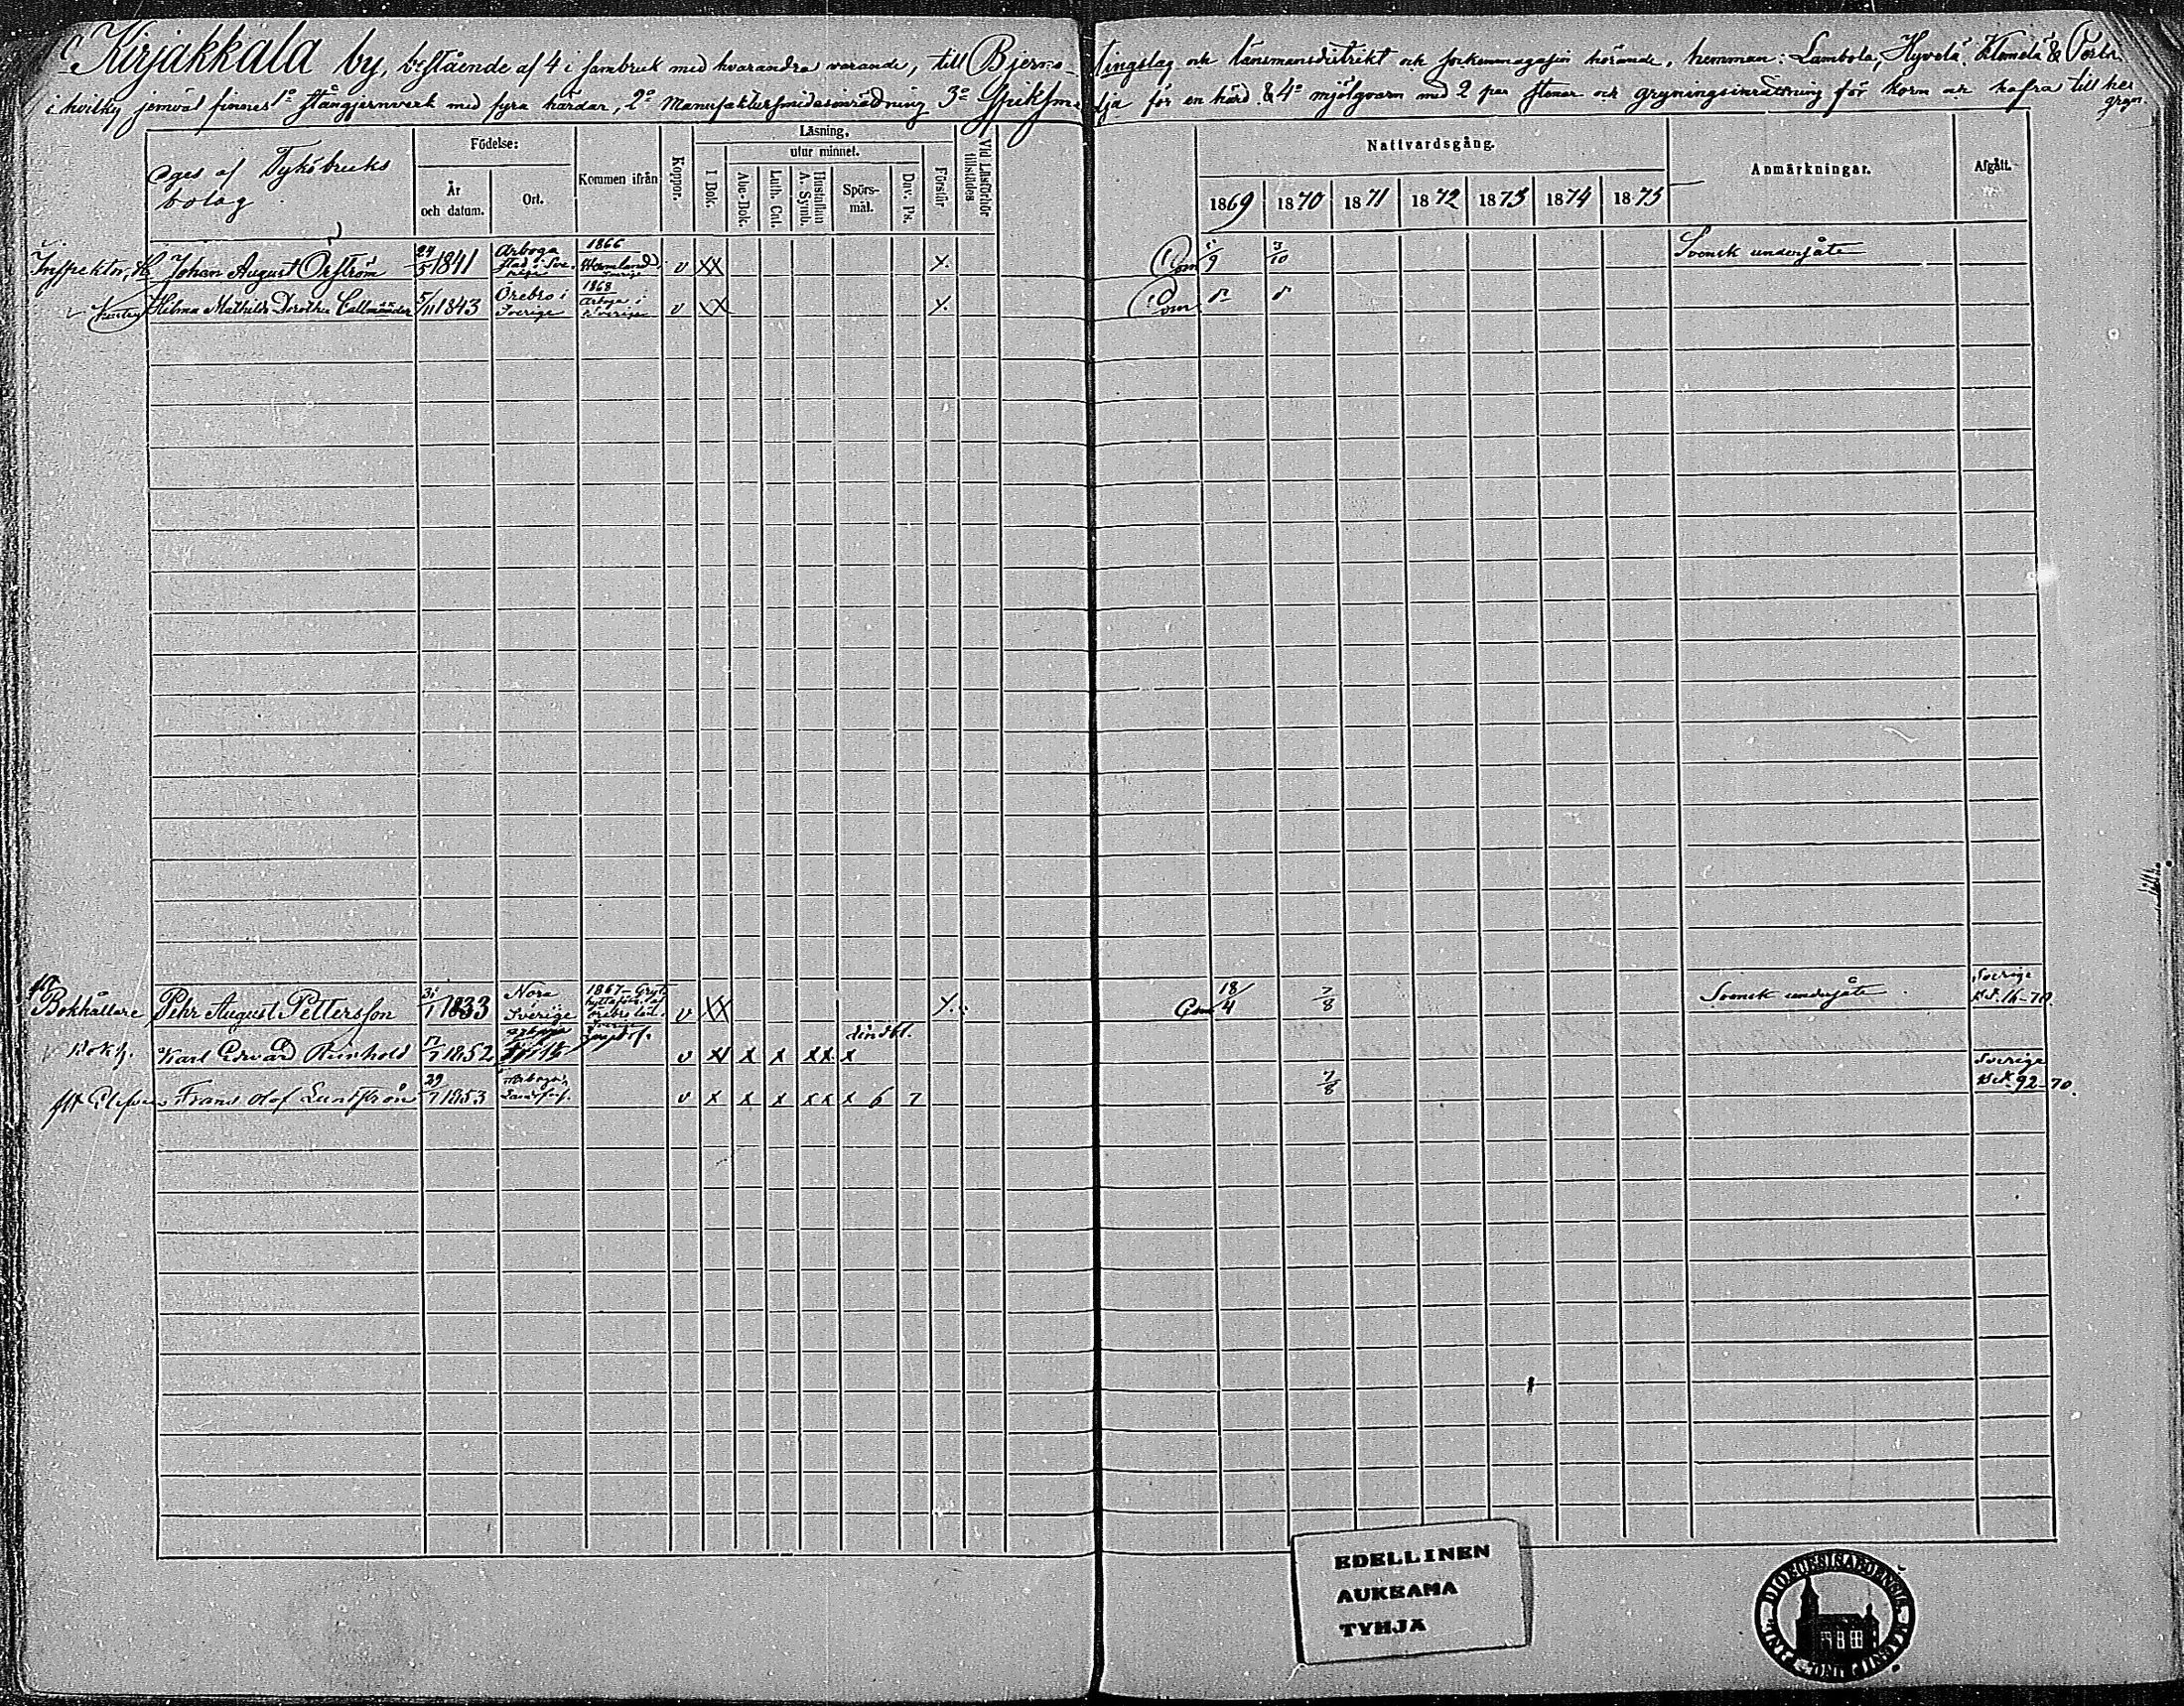 Kirjakkala by, bestående af 4 i sambruk med hvarandra varande, till Bjerno tingslag och länsmansdistrikt och sockenmagasin hörande, hemman: Lambola, Hyvelä, Klemelä &
i hvilken jemväl finnes 1º stångjernverk med fyra härdar, 2º Manufaktursmidesinrättning 3º spiksmedja för en härd & 4º mjölqvarn med 2 par stenar och gryningsinrättning för korn och hafra till
gryn.
Eges af Tykö bruks
bolag
Födelse:
År
och datum.
Ort.
Kommen ifrån
Koppor.
Läsning,
I Bok.
utur minnet.
Abc-Bok.
Luth. Cat.
Hustaflan
A. Symb.
Spörs-
mål.
Dav. Ps.
Förstår.
Vid Läsförhör
tillstädes
Nattvardsgång.
1869 1870 1871 1872 1873 1874 1875
Anmärkningar.
Afgått.
Inspektor, Johan August Örström 24/5 1841 Arboga stad i Sverige 1866 Wermland, Sverige v XX X. Com 9 3/10 Svensk undersåte
Hustru Hilma Mathilda Dorothea Callmander 5/11 1843 Örebro i Sverige 1868 Arboga i Sverige v XX X. Com
Bokhållare Pehr August Pettersson 31/1 1833 Nora Sverige 1867 v XX X. Com 18/4 7/8 Svensk undersåte Sverige 16-70
Bokh. Karl Edvard Reinhold 1852 v X X X XX X
Frans Olof Lundström 29/7 1853 v X X X XX X 6 7 7/8 Sverige 92-70.
EDELLINEN
AUKEAMA
TYHJÄ